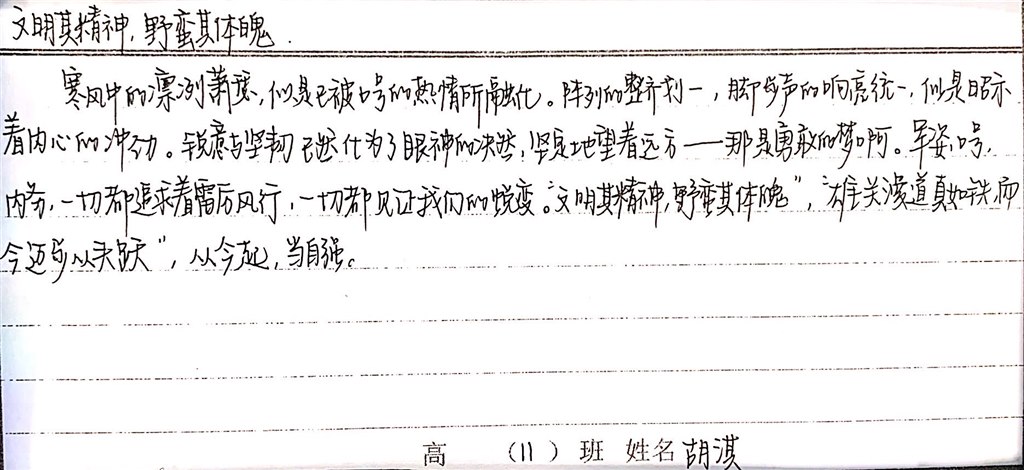 文明其精神,野蛮其体魄.
寒风中的凛冽萧瑟,似是已被口号的热情所融化。阵列的整齐划一,脚步声的响亮统一,似是昭示
着内心的冲劲。锐意与坚韧已然化为了眼神的决然,坚定地望着远方——那是勇敢的梦啊。军姿,口号,
内务,一切都追求着雷厉风行,一切都见证我们的蜕变。“文明其精神,野蛮其体魄”,“雄关漫道真如铁,而
今迈步从头跃”,从今起,当自强。
高 (11)班 姓名 胡淇